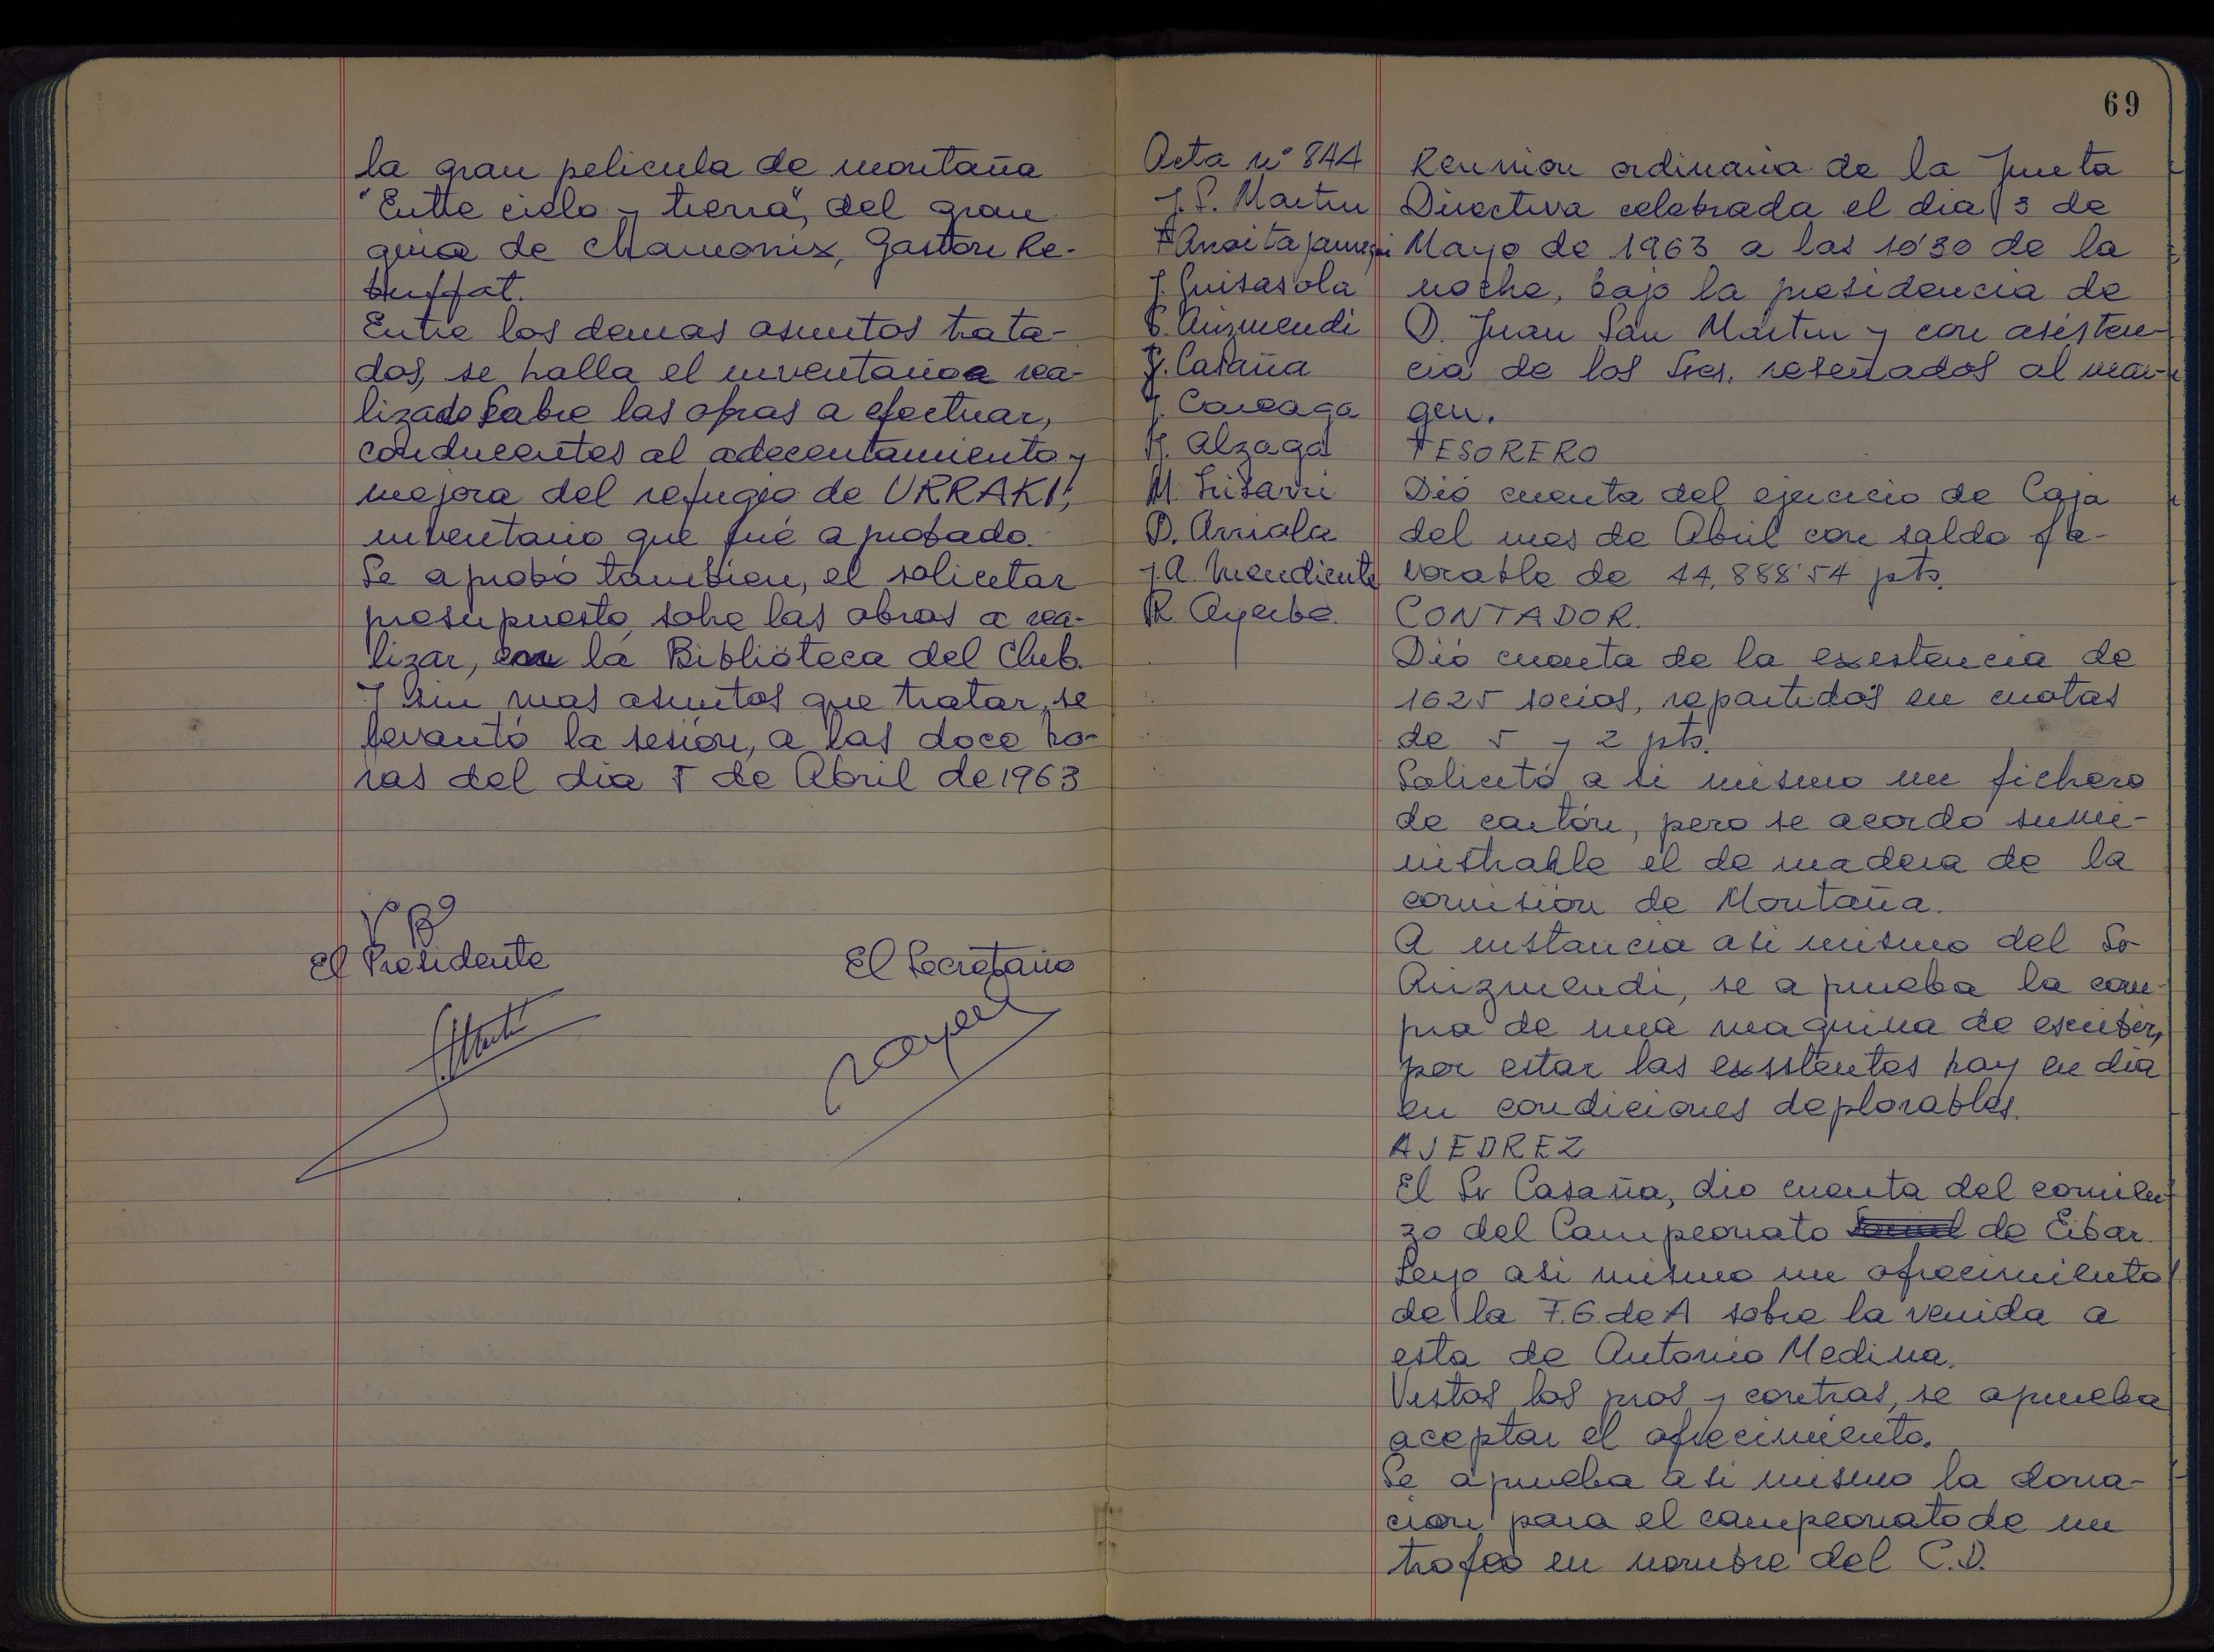 la gran pelicula de montaña
"Entre cielo y tierra", del gran
guia de Chamonix, Gaston Re-
buffat.
Entre los demas asuntos trata-
dos, se halla el inventario rea-
lizado sobre las obras a efectuar,
conducentes al adecentamiento y
mejora del refugio de URRAKI,
inventario que fué aprobado.
Se aprobó tambien, el solicitar
presupuesto sobre las obras a rea-
lizar, en la Biblioteca del Club.
Y sin mas asuntos que tratar, se
levantó la sesión, a las doce ho-
ras del dia 5 de Abril de 1963
Vº Bº
El Presidente
El Secretario
69
Acta nº 844
J. S. Martin
J. Guisasola
C. Aizmendi
J. Casaña
J. Careaga
J. Alzaga
D. Arriola
J.A. Mendicute
R. Ayerbe.
Reunion ordinaria de la Junta
Directiva celebrada el dia 3 de
Mayo de 1963 a las 10'30 de la
noche, bajo la presidencia de
D. Juan San Martin y con asisten-
cia de los Sres. reseñados al mar-
gen.
TESORERO
Dió cuenta del ejercicio de Caja
del mes de Abril con saldo fa-
vorable de 44.888'54 pts.
CONTADOR.
Dió cuenta de la existencia de
1625 socios, repartidos en cuotas
de 5 y 2 pts.
Solicitó a si mismo un fichero
de cartón, pero se acordó sumi-
nistrable el de madera de la
comisión de Montaña.
A instancia asi mismo del Sr
Aizmendi, se aprueba la com-
pra de una maquina de escribir,
por estar las existentes hoy en dia
en condiciones deplorables.
AJEDREZ
El Sr Casaña, dio cuenta del comien-
zo del Campeonato Social de Eibar.
Leyo asi mismo un ofrecimiento
de la F.G. de A sobre la venida a
esta de Antonio Medina.
Vistos los pros y contras, se aprueba
aceptar el ofrecimiento.
Se aprueba asi mismo la dona-
cion para el campeonato de un
trofeo en nombre del C.D.